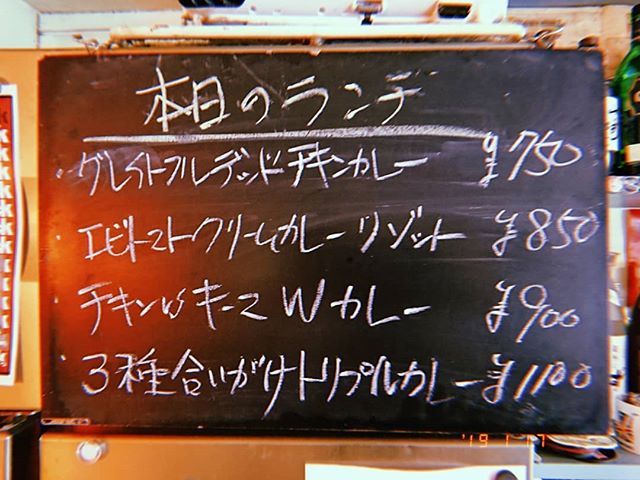 本日のランデ
・グレイトフルデッドチキンカレー ¥750
・エビトマトクリームカレーリゾット ¥850
・チキンVSキーマWカレー ¥900
・3種合いがけトリプルカレー ¥1100
'19 1 17